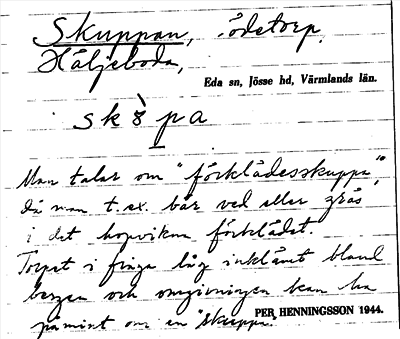 Skuppan, ödetorp,
Häljeboda,
Eda sn, Jösse hd, Värmlands län.
sk8̀pa
Man talar om "förklädesskuppa",
då man t.ex. bär ved eller gräs
i det hopvikna förklädet.
Torpet i fråga låg inklämt bland
bergen och omgivningen kan ha
påmint om en "skuppa".
PER HENNINGSSON 1944.